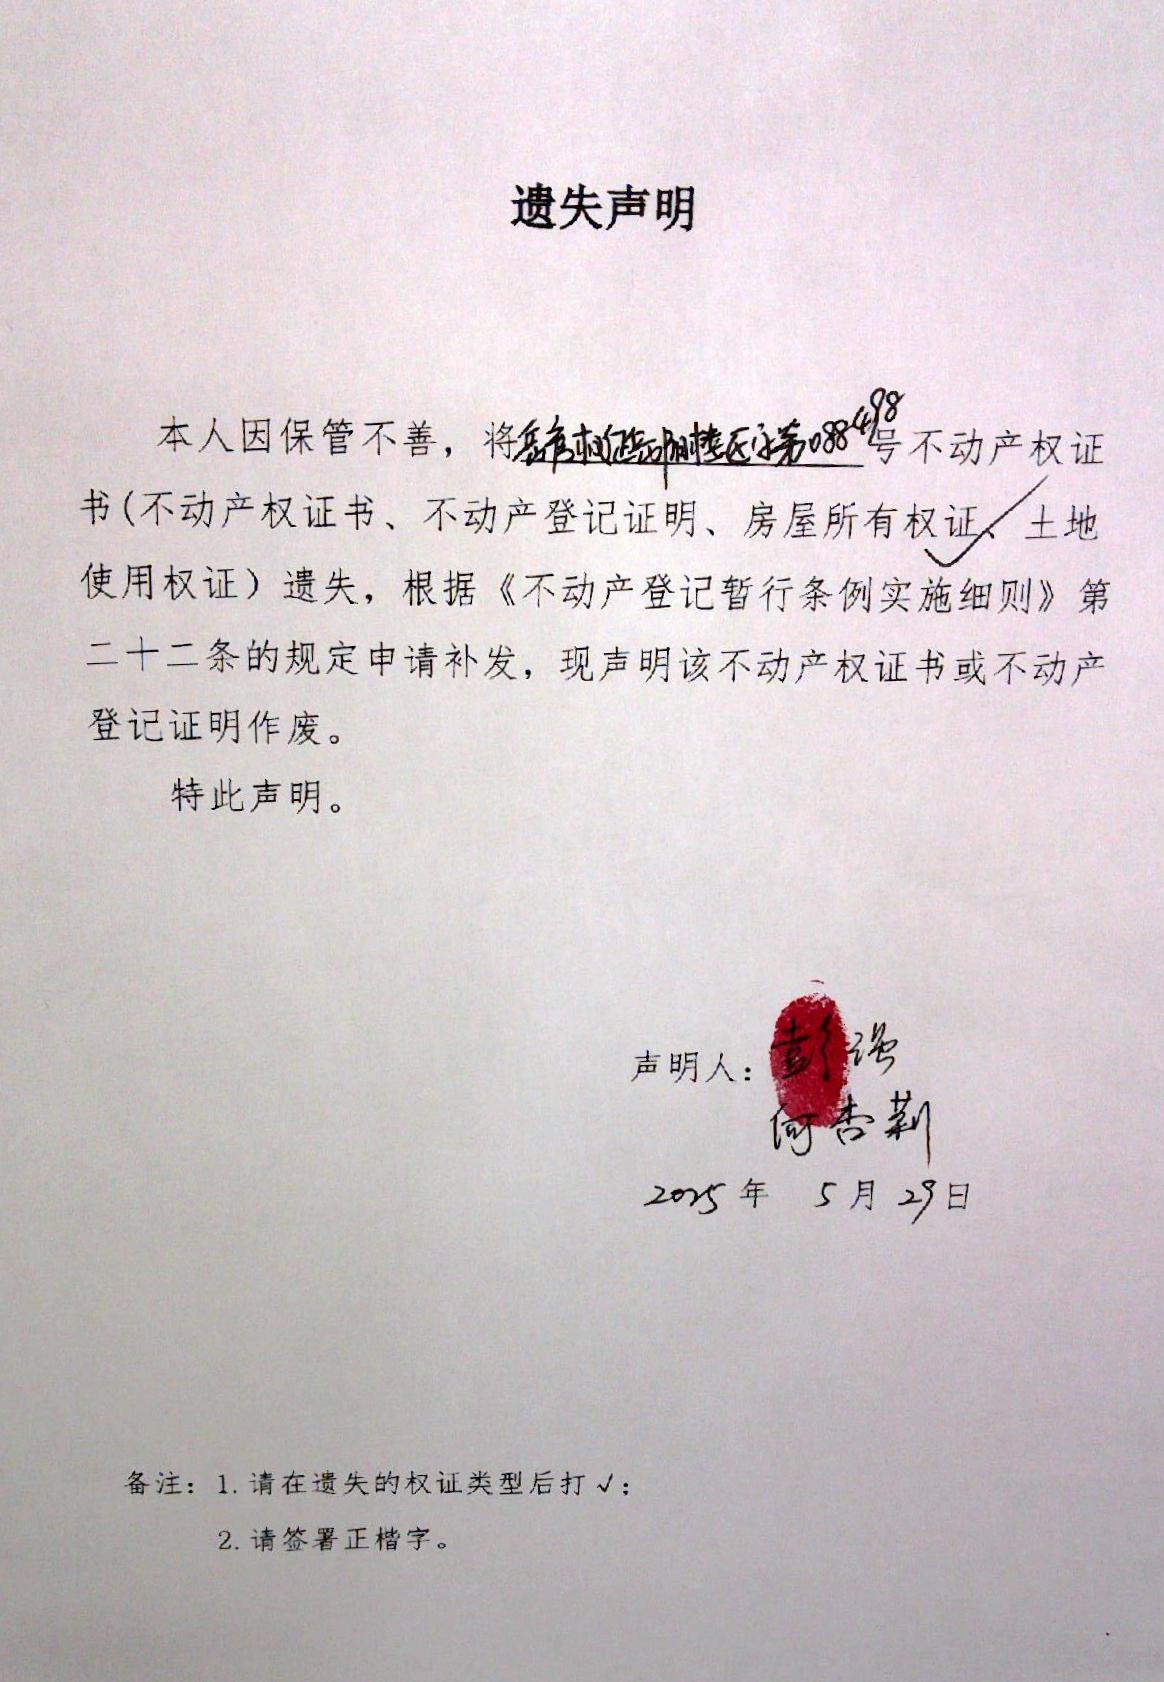 遗失声明
本人因保管不善，将岳房权证岳阳楼区字第088498号不动产权证
书(不动产权证书、不动产登记证明、房屋所有权证、√土地
使用权证）遗失，根据《不动产登记暂行条例实施细则》第
二十二条的规定申请补发，现声明该不动产权证书或不动产
登记证明作废。
特此声明。
声明人：彭强
何杏莉
2025年 5月29日
备注：1. 请在遗失的权证类型后打√；
2. 请签署正楷字。